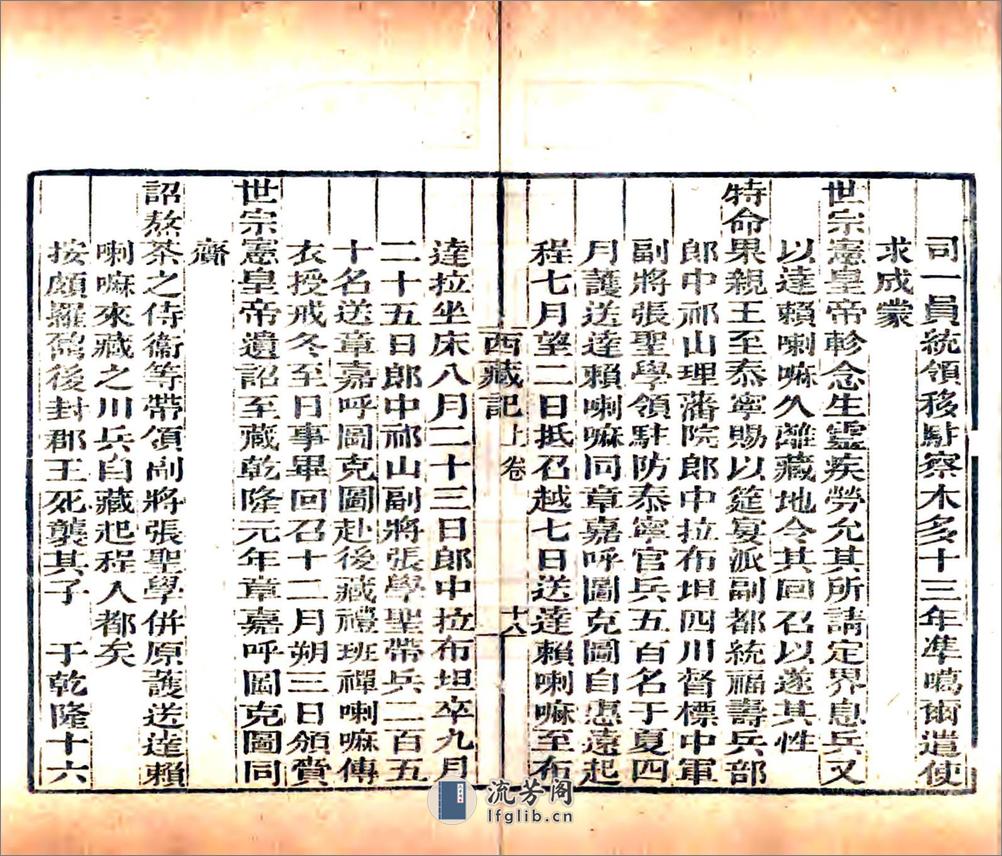 司一員統領移駐察木多十三年準噶爾遣使
求成蒙
世宗憲皇帝軫念生靈疾勞允其所請定界息兵又
以達賴喇嘛久離藏地令其回召以遂其性
特命果親王至泰寧賜以筵宴派副都統福壽兵部
郎中祁山理藩院郎中拉布坦四川督標中軍
副將張聖學領駐防泰寧官兵五百名于夏四
月護送達賴喇嘛同章嘉呼圖克圖自惠遠起
程七月望二日抵召越七日送達賴喇嘛至布
西藏記 上卷 十八
達拉坐床八月二十三日郎中拉布坦卒九月
二十五日郎中祁山副將張學聖帶兵二百五
十名送章嘉呼圖克圖赴後藏禮班禪喇嘛傳
衣授戒冬至日事畢回召十二月朔三日頒賞
世宗憲皇帝遺詔至藏乾隆元年章嘉呼圖克圖同
齎
詔熬茶之侍衞等帶領副將張聖學併原護送達賴
喇嘛來藏之川兵自藏起程入都矣
按頗羅鼐後封郡王死襲其子 于乾隆十六
流芳阁
lfglib.cn